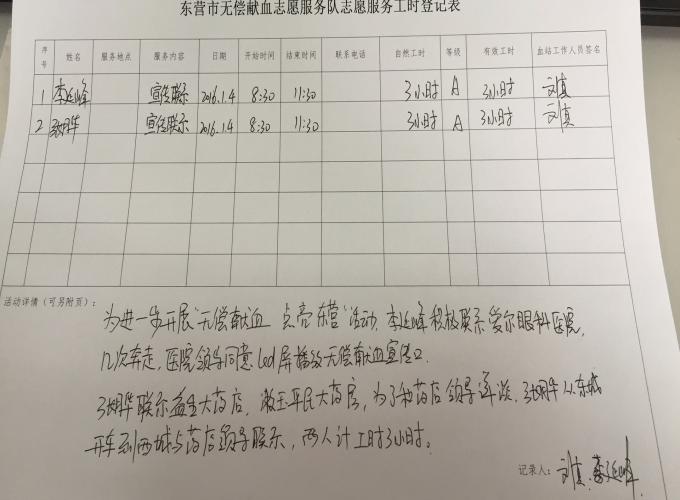 东营市无偿献血志愿服务队志愿服务工时登记表
序号 姓名 服务地点 服务内容 日期 开始时间 结束时间 联系电话 自然工时 等级 有效工时 血站工作人员签名
1 李延峰 宣传联系 2016.1.4 8:30 11:30 3小时 A 3小时 刘真
2 宣传联系 2016.1.4 8:30 11:30 3小时 A 3小时 刘真
活动详情（可另附页）：
为进一步开展"无偿献血 点亮东营"活动, 李延峰积极联系爱尔眼科医院,
几次奔走, 医院领导同意led屏播放无偿献血宣传口.
联系益生大药店, 平民大药房, 为了和药店领导详谈, 从东城
开车到西城与药店领导联系, 两人计工时3小时。
记录人: 刘真. 李延峰